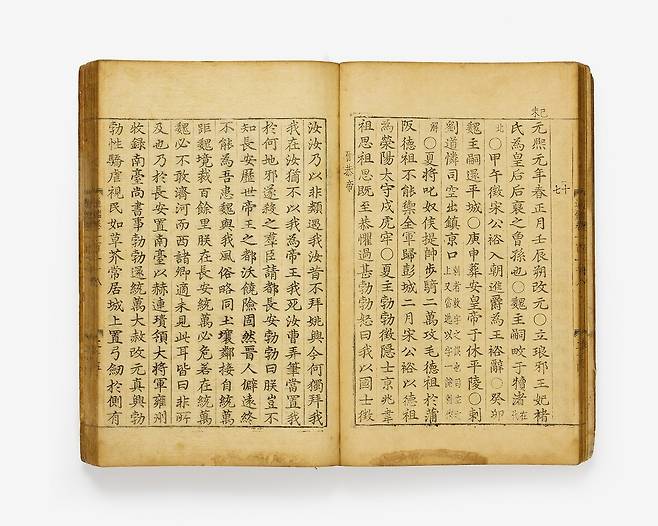 己未
元熙元年春正月壬辰朔改元○立琅邪王妃褚
十七
氏為皇后后裒之曾孫也○魏主嗣畋于犢渚
北○甲午徵宋公裕入朝進爵為王裕辭○癸卯
魏主嗣還平城○庚申葬安皇帝于休平陵○刺
劉道憐司空出鎮京口
解○夏將叱奴侯提帥步騎二萬攻毛德祖於蒲
阪德祖不能禦全軍歸彭城二月宋公裕以德祖
為滎陽太守戍虎牢○夏主勃勃徵隱士京兆韋
祖思祖思既至恭懼過甚勃勃怒曰我以國士徵
晉恭帝
汝汝乃以非類遇我汝昔不拜姚興今何獨拜我
我在汝猶不以我為帝王我死汝曹弄筆當置我
於何地邪遂殺之羣臣請都長安勃勃曰朕豈不
知長安歷世帝王之都沃饒險固然晉人僻遠終
不能為吾患魏與我風俗略同土壤鄰接自統萬
距魏境裁百餘里朕在長安統萬必危若在統萬
魏必不敢濟河而西諸卿適未見此耳皆曰非所
及也乃於長安置南臺以赫連璝領大將軍雍州
牧錄南臺尚書事勃勃還統萬大赦改元真興勃
勃性驕虐視民如草芥常居城上置弓劒於側有